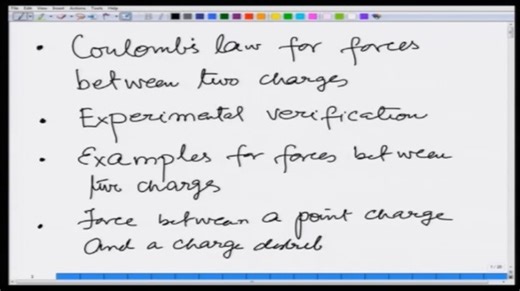 • Coulomb's law for forces
between two charges
• Experimental verification
• Examples for forces between
two charges
• Force between a point charge
and a charge distrib